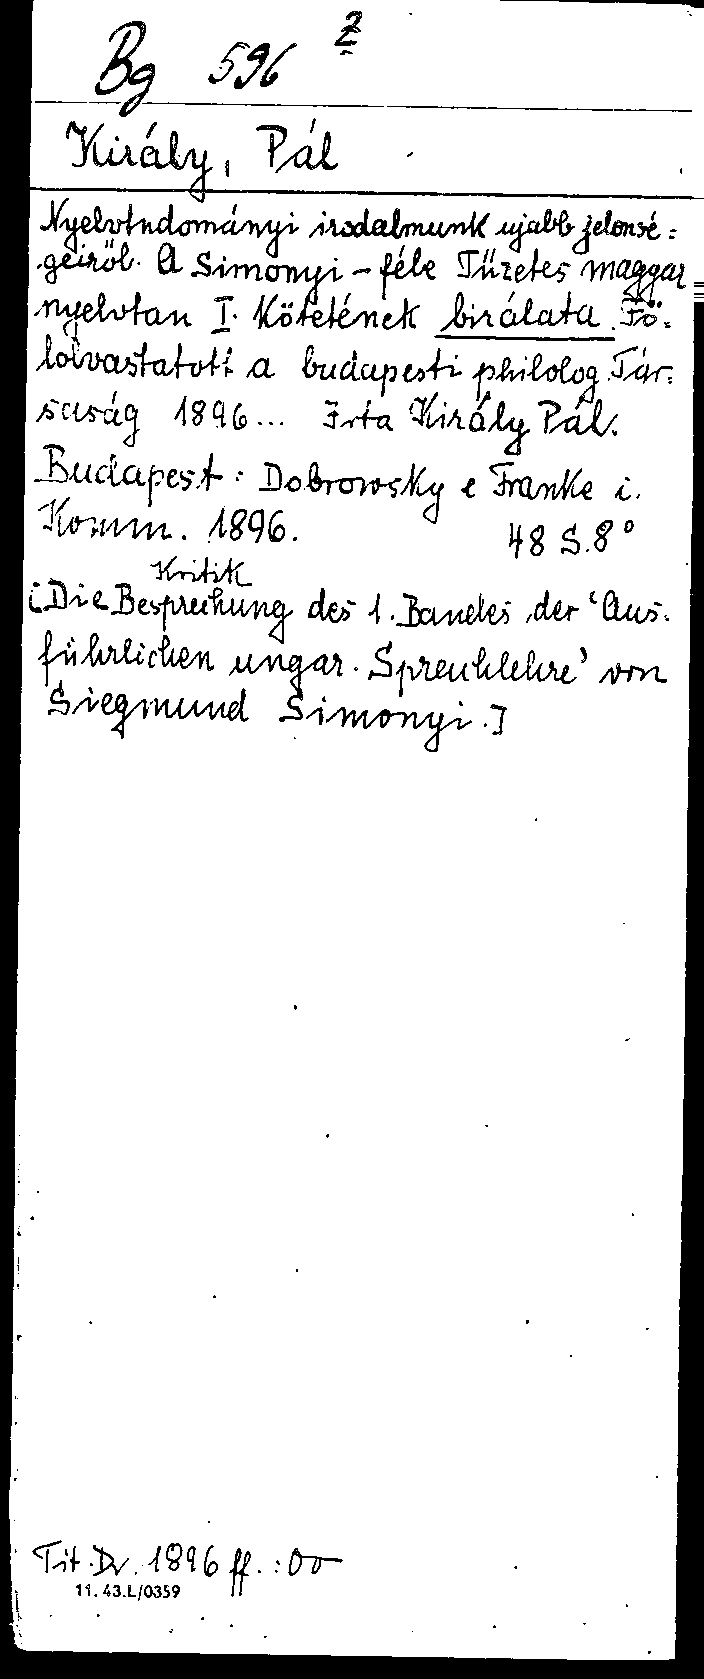 Bg 596 z
Király, Pál
Nyelvtudományi irodalmunk ujabb jelensé=
geiröl. A Simonyi-féle Tüzetes maggar
nyelvtan I. Kötetének birálata. Fö=
lolvastatott a budapesti philolog. Tár=
saság 1896... Irta Király Pál.
Budapest: Dobrowsky e Franke i.
Komm. 1896. 48 S. 8°
Kritik
[Die Besprechung des 1. Bandes der 'Aus=
führlichen ungar. Sprachlehre' von
Siegmund Simonyi.]
Tit. Dr. 1896 ff. :
11. 43.L/0359